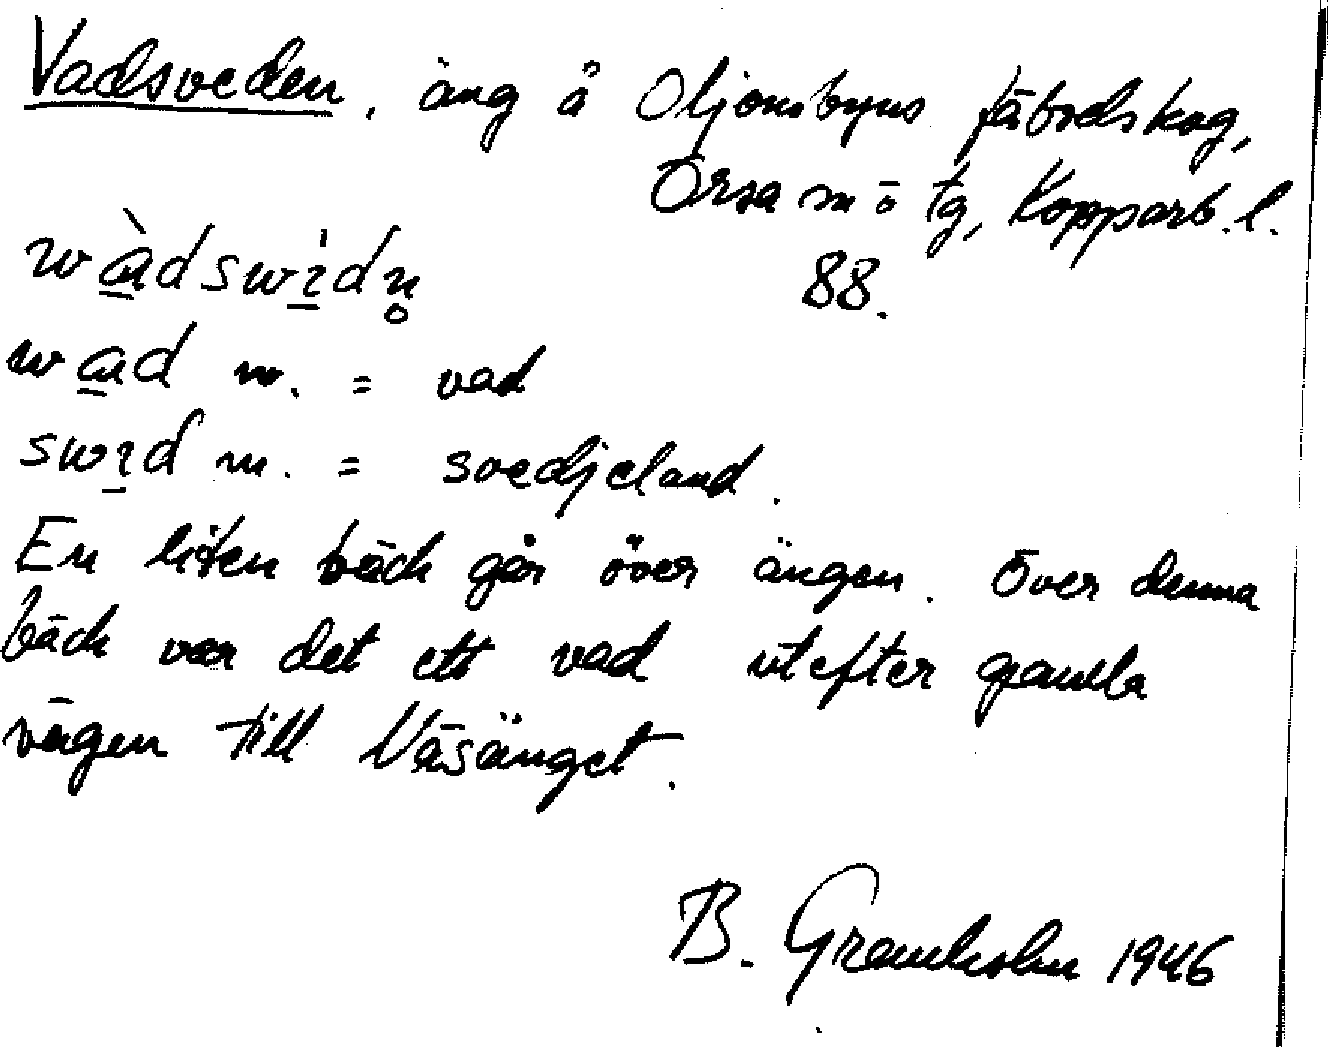 Vadsveden, äng å Oljonsbyns fäbodskog,
Orsa sn o tg, Kopparb. l.
88.
wàdswìdn̥
wad m. = vad
swid m. = svedjeland.
En liten bäck går över ängen. Över denna
bäck var det ett vad utefter gamla
vägen till Väsänget.
B. 1946